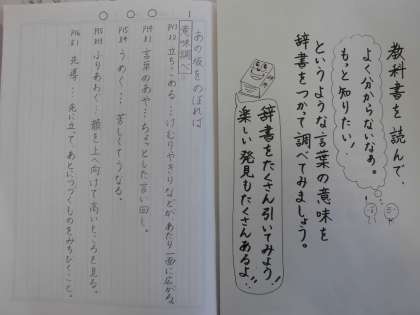 教科書を読んで、
よく分からないなあ。
もっと知りたい！
というような言葉の意味を
辞書をつかって調べてみましょう。
辞書をたくさん引いてみよう！
楽しい発見もたくさんあるよ!!
1
あの坂をのぼれば
意味調べ
立ちこめる…けむりやきりなどが、あたり一面に広がる。
言葉のあや…ちょっとした言い回し。
うめく…苦しくてうなる。
ふりあおぐ…顔を上へ向けて高いところを見る。
先導…先に立って、あとにつづくものをみちびくこと。